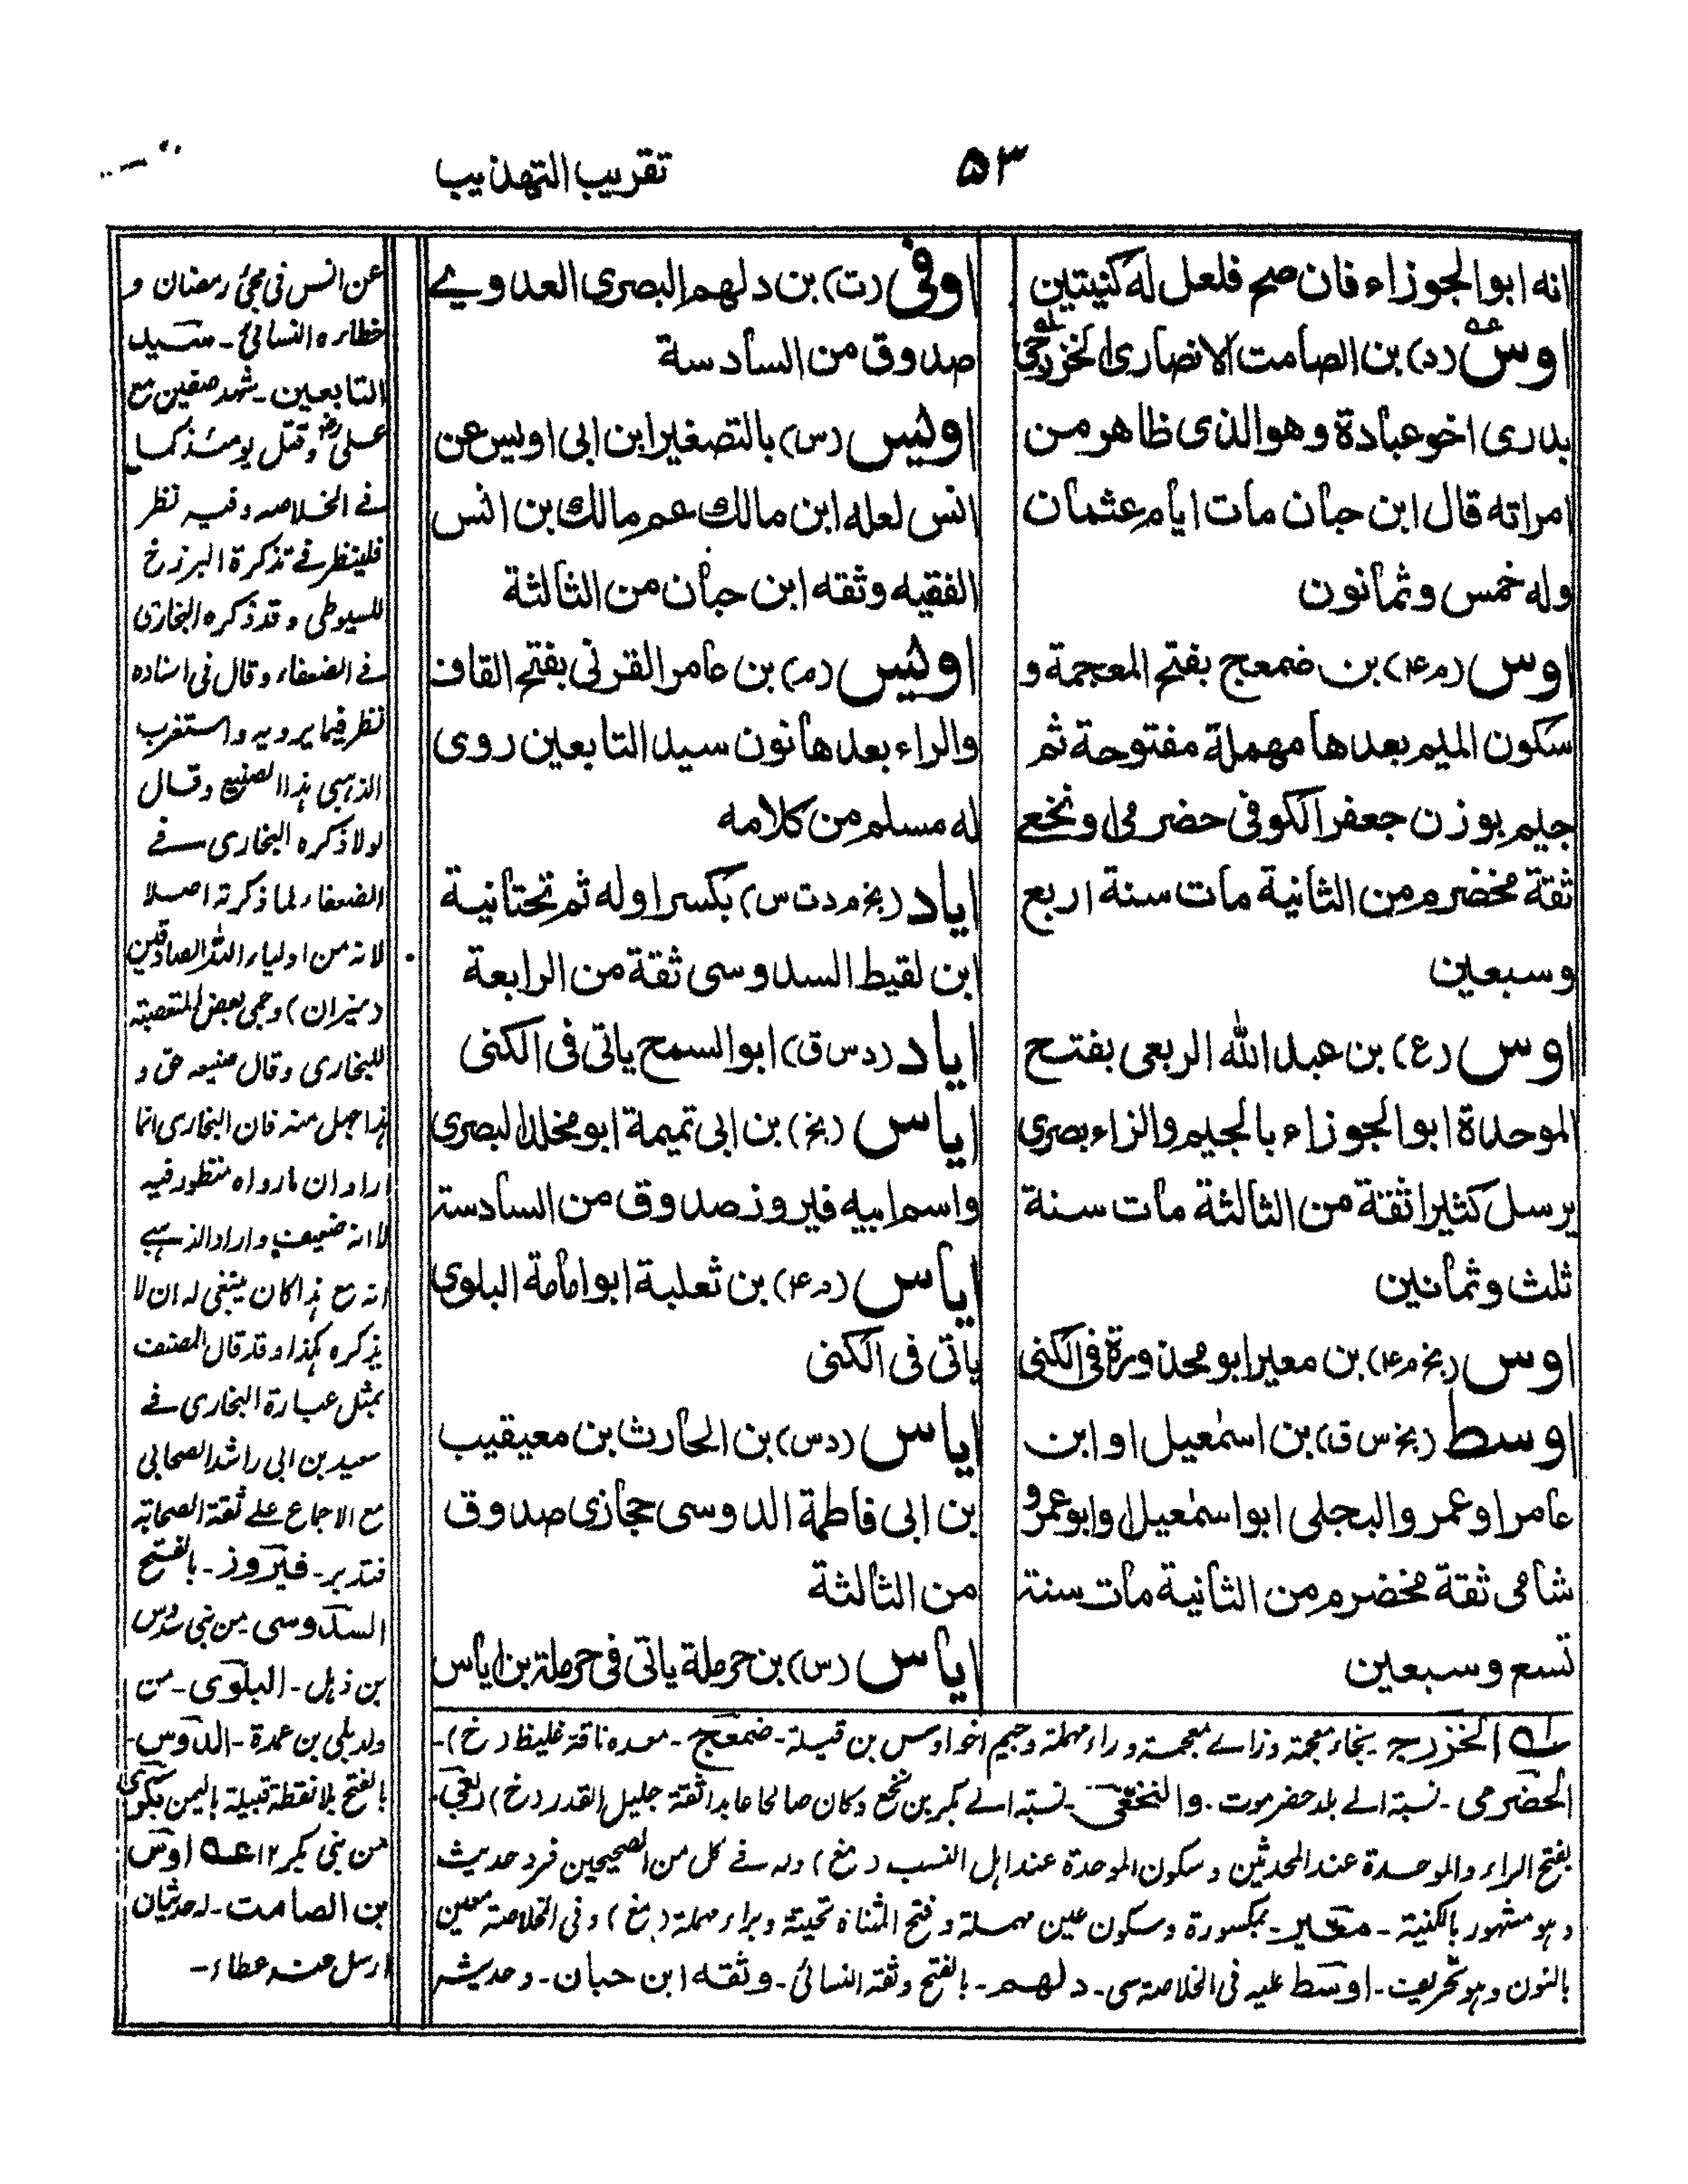 ۵۳
تقريب التهذيب
انه ابوالجوزاء فان صح فلعل له كنيتين
اوس (د) بن الصامت الانصارى الخزرجى
بدرى اخو عبادة وهو الذى ظاهر من
امراته قال ابن حبان مات ايام عثمان
وله خمس وثمانون
اوس (م۴) بن ضمعج بفتح المعجمة و
سكون الميم بعدها مهملة مفتوحة ثم
جيم بوزن جعفر الكوفى حضرمى او نخعى
ثقة مخضرم من الثانية مات سنة اربع
وسبعين
اوس (ع) بن عبد الله الربعى بفتح
الموحدة ابوالجوزاء بالجيم والزاء بصرى
يرسل كثيرا ثقة من الثالثة مات سنة
ثلث وثمانين
اوس (بخ م۴) بن معير ابو محذورة فى الكنى
اوسط (بخ س ق) بن اسمٰعيل او ابن
عامر او عمرو البجلى ابو اسمٰعيل وابو عمرو
شامى ثقة مخضرم من الثانية مات سنة
تسع وسبعين
اوفى (ت) بن دلهم البصرى العدوى
صدوق من السادسة
اويس (س) بالتصغير ابن ابى اويس عن
انس لعله ابن مالك عم مالك بن انس
الفقيه وثقه ابن حبان من الثالثة
اويس (م) بن عامر القرنى بفتح القاف
والراء بعدها نون سيد التابعين روى
له مسلم من كلامه
اياد (بخ م د ت س) بكسر اوله ثم تحتانية
ابن لقيط السدوسى ثقة من الرابعة
اياد (د س ق) ابوالسمح ياتى فى الكنى
اياس (بخ) بن ابى تميمة ابو مخلد البصرى
واسم ابيه فيروز صدوق من السادسة
اياس (م۴) بن ثعلبة ابو امامة البلوى
ياتى فى الكنى
اياس (د س) بن الحارث بن معيقيب
بن ابى فاطمة الدوسى حجازى صدوق
من الثالثة
اياس (س) بن حرملة ياتى فى حرملة بن اياس
له الخزرج بخاء معجمة وزاے معجمة وراء مهملة وجيم اخو اوس بن قيلة - ضمعج - معده ناقة غليظ (خ) -
الحضرمى - نسبة الے بلد حضرموت - والنخعى - نسبة الے بكر بن نخع وكان صالحا عابدا ثقة جليل القدر (خ) ربعى -
بفتح الراء والموحدة عند المحدثين وسكون الموحدة عند اهل النسب (مغ) وله فے كل من الصحيحين فرد حديث
وهو مشهور بالكنية - معير - بمكسورة وسكون عين مهملة وفتح المثناة تحتية وبراء مهملة (مغ) وفى الخلاصة معين
بالنون وهو تحريف - اوسط عليه فى الخلاصة سى - دلهم - بالفتح وثقه النسائى - وثقه ابن حبان - وحديثه
عن انس فى مجئ رمضان و
خطاءه النسائى - سيد
التابعين - شهد صفين مع
على رض وقتل يومئذ كما
فے الخلاصه وفيه نظر
فلينظر فے تذكرة البرزخ
للسيوطى وقد ذكره البخارى
فے الضعفاء وقال فى اسناده
نظر فيما يرويه واستغرب
الذهبى هذا الصنيع وقال
لولا ذكره البخارى فے
الضعفاء لما ذكرته اصلا
لانه من اولياء الله الصادقين
(ميزان) وحمى بعض المتعصبة
للبخارى وقال صنيعه حق و
هذا جهل منه فان البخارى انما
اراد ان مارواه منظور فيه
لا انه ضعيف واراد الذهبے
انه مع هذا كان ينبغى له ان لا
يذكره هكذا وقد قال المصنف
بمثل عبارة البخارى فے
سعيد بن ابى راشد الصحابى
مع الاجماع علے ثقة الصحابة
فتدبر - فيروز - بالفتح
السدوسى - من بنى سدوس
بن ذهل - البلوى - من
ولد بلى بن عمرة - الدوس -
بالفتح بلا نقطة قبيلة باليمن
من بنى بكر ۱۲ عه اوس
بن الصامت - له حديثان
ارسل عنه عطاء -